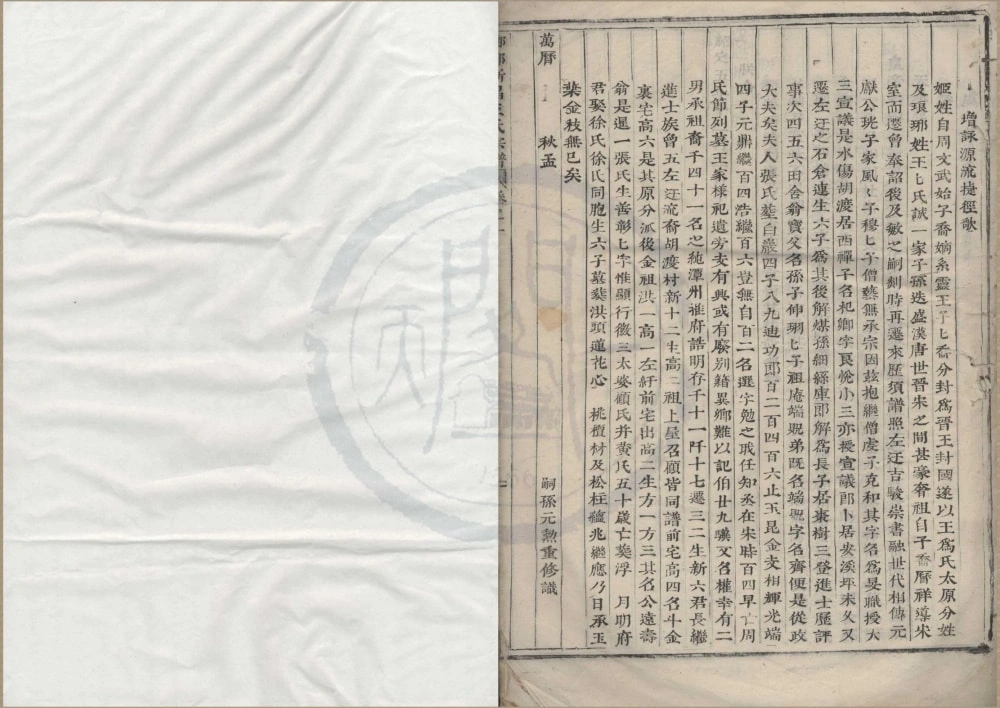 增詠源流捷徑歌
姬姓自周文武始子喬嫡系靈王子匕喬分封為晉王封國遂以王為氏太原分姓
及琅琊姓王匕氏誠一家子孫迭盛漢唐世晉宋之間甚豪奢祖自子喬曆祥導宋
室而遷曾奉詔後及敏之嗣剡時再遷來歷須譜照左迂吉駿崇書融世代相傳元
獻公珖子家風匕子穆匕子僧藝無承宗因玆抱繼僧虔子克和其字名為晏職授大
三宣議是水傷胡渡居西禪子名杞鄉字良悅小三亦授宣議郎卜居安溪坪末乂又
遷左迂之石倉連生六子為其後解媒孫細縣庫即解為長子居棗樹三登進士歷評
事次四五六田舍翁寶父名孫子伸珊匕子祖庵端貺弟既名端字名齊便是從政
大夫矣夫人張氏塟白巖四子八九迪功郎百二百四百六止玉昆金友相輝光端
四子元鼎繼百四浩繼百六登無自百二名選字勉之職任知丞在宋時百四早亡周
氏節列墓王家樣祀遺旁支有興或有廢別籍異鄉難以記伯廿九驥又名權幸有二
男承祖裔千四十一名之純潭州推府誥明存千十一阡十七遷三二生新六君長繼
進士族曾五左迂流裔胡渡村新十二生高二祖上屋召顧皆同譜前宅高四名斗金
裏宅高六是其原分派後金祖洪一高一左紆前宅出高二生方一方三其名公遠壽
翁是暹一張氏生善彰匕字惟顯行徵三太婆顧氏并黃氏五十歲亡塟浮　月明府
君娶徐氏徐氏同胞生六子墓塟洪頭蓮花心　桃檀材及松柱蘊兆繼應乃曰承玉
葉金枝無已矣
萬曆　秋孟　嗣孫元勲重修識